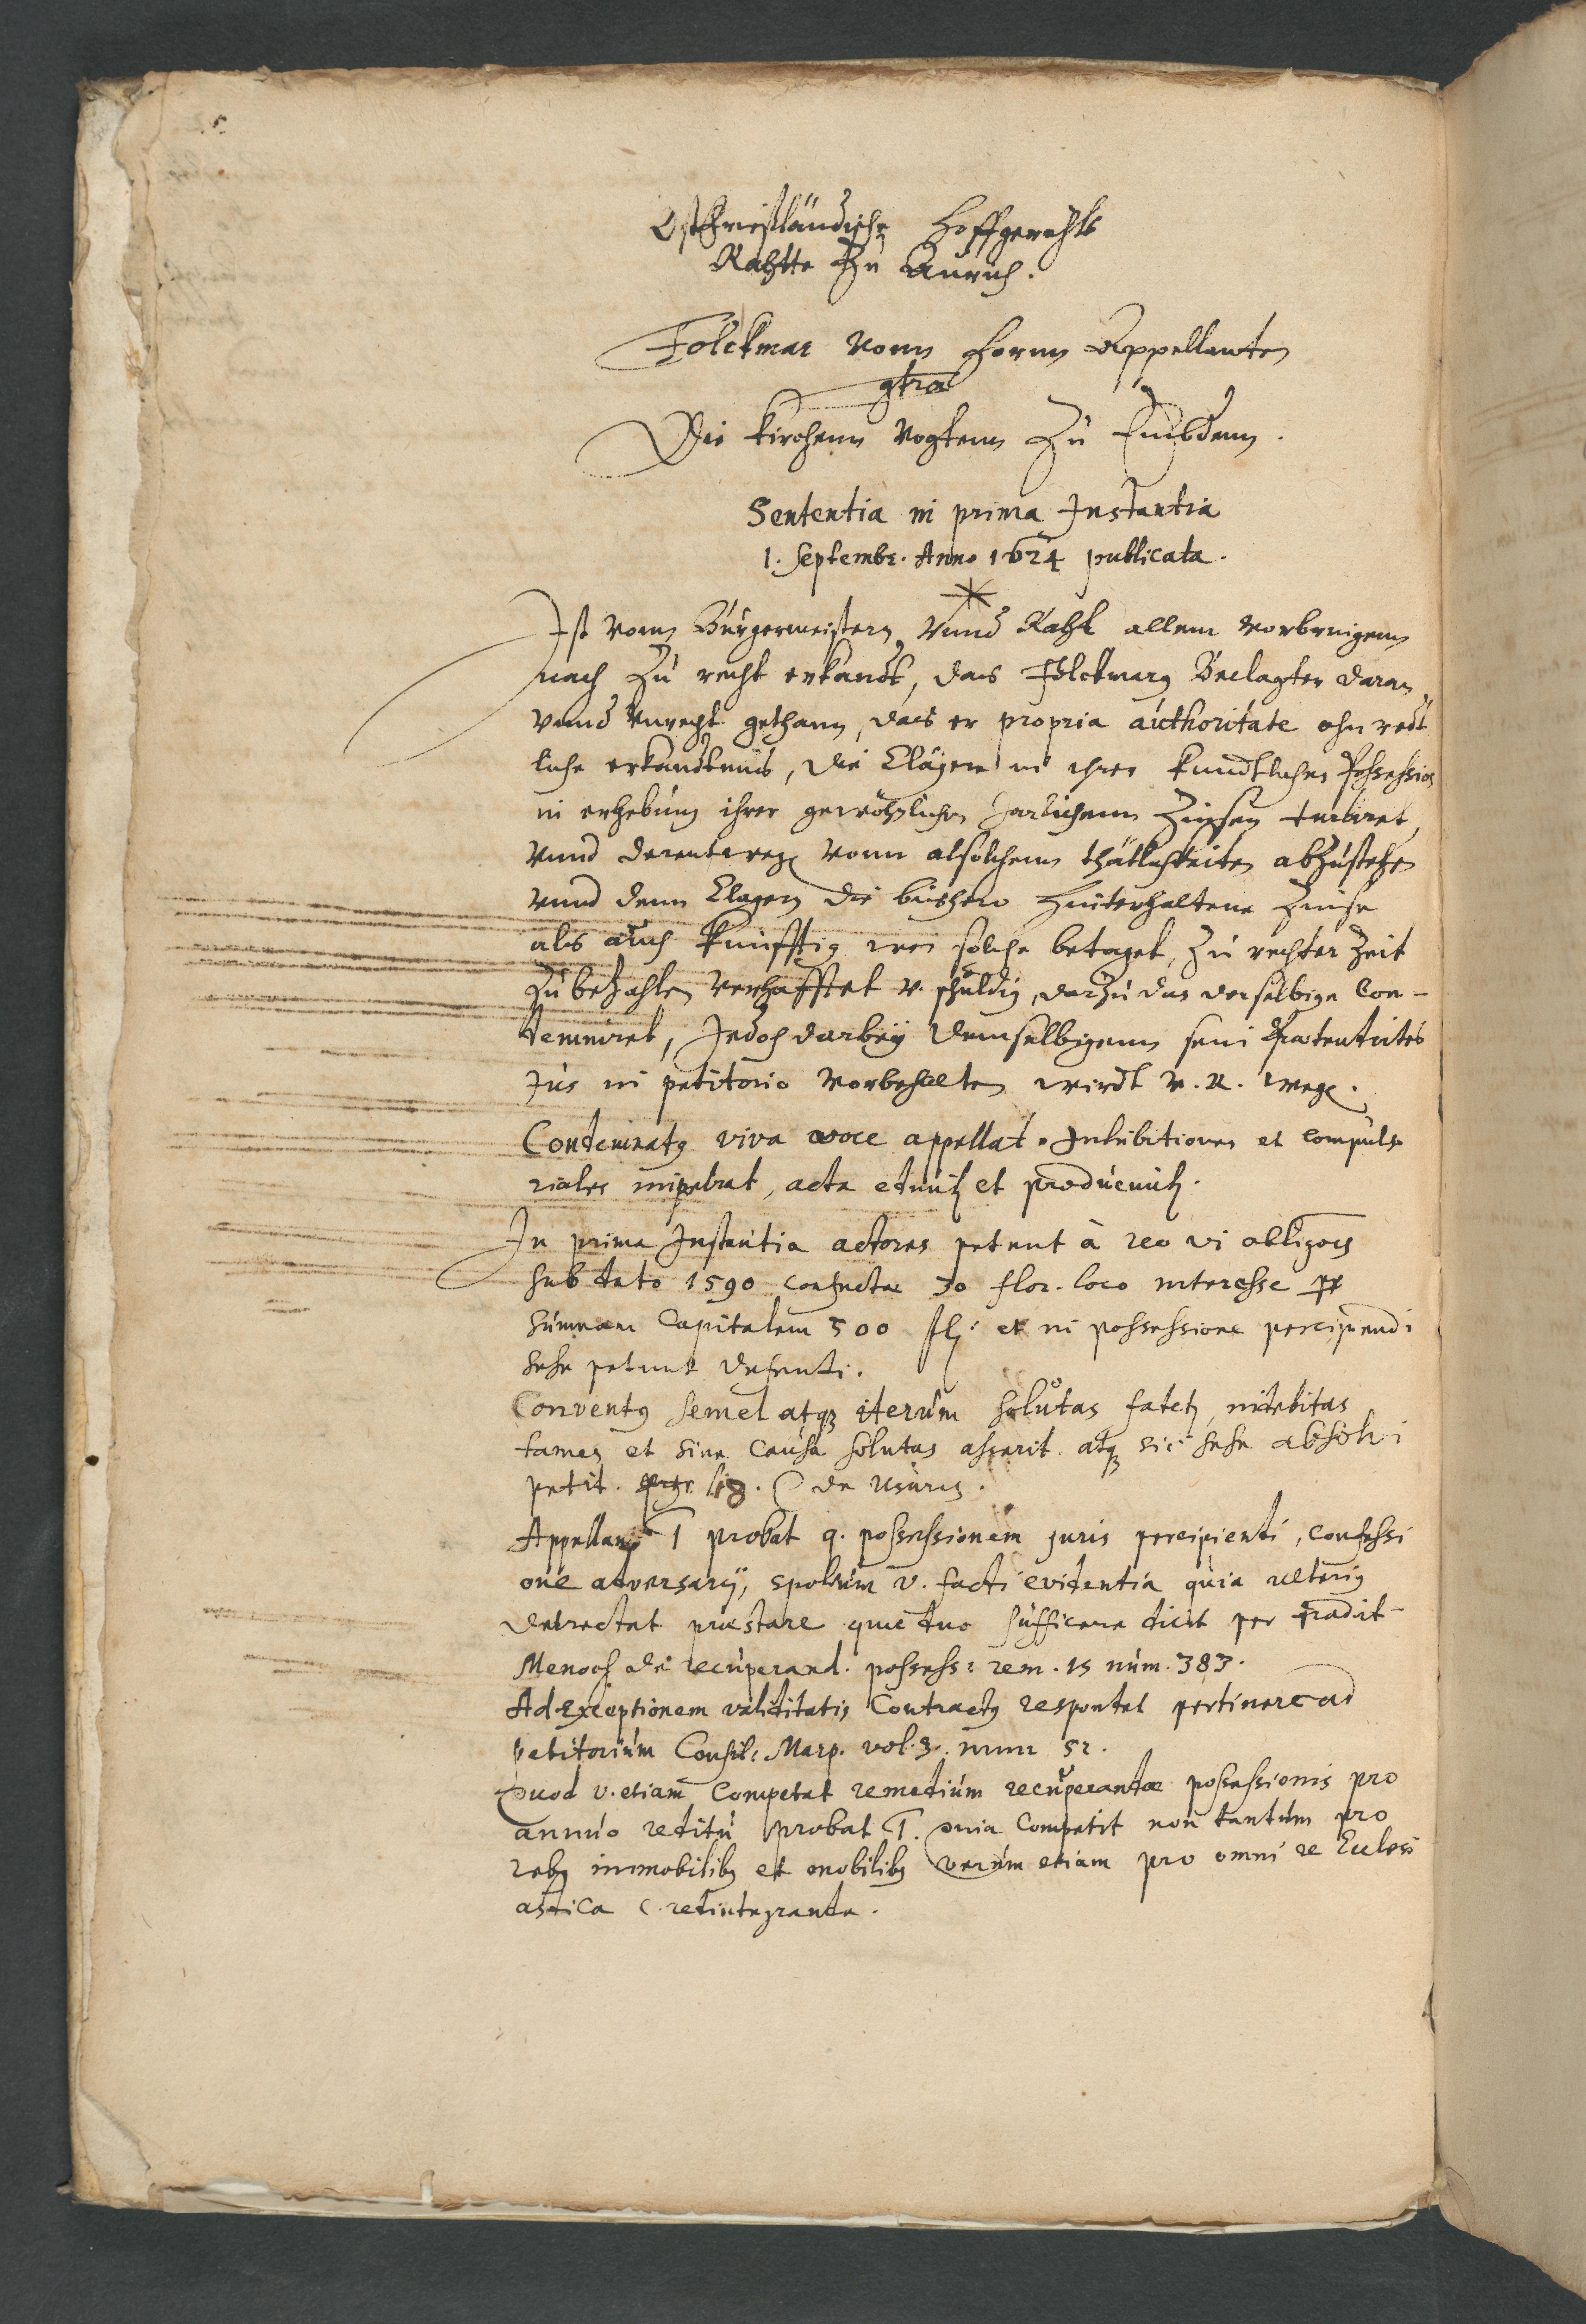 Ostfrießländische Hoffgerichts
Rahtte zu Aurich.
Folckmar vonn Hornn Appellanten
ctra
Die Kirchenn Vogtenn zu Embdenn.
Sententia in prima Instantia
1. Septembr. Anno 1624 publicata.
Ist vonn Bürgermeistern vnnd Raht allem vorbringenn
nach zu recht erkandt, das Folckmarg Beclagter daran
vnnd vnrecht gethann, das er propria authoritate ohn recht
liche erkandtnus, die Clägere in ihrer kundtlichen Possession
in erhebung ihrer gewöhnlichen Jarlichenn Zinsen turbiret,
vnnd derentweg vonn alsolchenn thätlichkeiten abzustehen
vnnd denn Clagern die bishero hinterhaltene Zinse
als auch künfftig wen solche betaget, zu rechter Zeit
zu bezahlen verhafftet v. schuldig, darzu das derselbige Con-
demniret, Jedoch darbey demselbigenn sein praetendirtes
Jus in petitorio vorbehalten wirdt v. R. weg.
Condemnatus viva voce appellat. Inhibitiones et compulso
riales impetrat, acta eduntur et producuntur.
In prima Instantia actores petunt à reo vi obligationis
sub dato 1590 confectae 30 flor. loco interesse pro
summam Capitalem 500 fl. et in possessione percipiendi
sese petunt defendi.
Conventus semel atque iterum solutas fatetur, indebitas
tamen et sine causa solutas asserit. atque sic sese absolvi
petit. lib. C de usuris.
Appellans 1 probat q. possessionem juris percipiendi, confessi
one adversarij, spolium v. facti evidentia quia ulterius
detrectat praestare quae duo sufficere dicit per tradit.
Menoch de recuperand. possess: rem. 15 num. 383.
Ad Exceptionem validitatis Contractus respondet pertinere ad
petitorium Consil: Marp. vol. 3. num 52.
Quod v. etiam Competat remedium recuperandae possessionis pro
annuo reditu probat 1. quia Competit non tantum pro
rebus immobilibus et mobilibus verum etiam pro omni re Ecclesi
astica c. redintegranda.